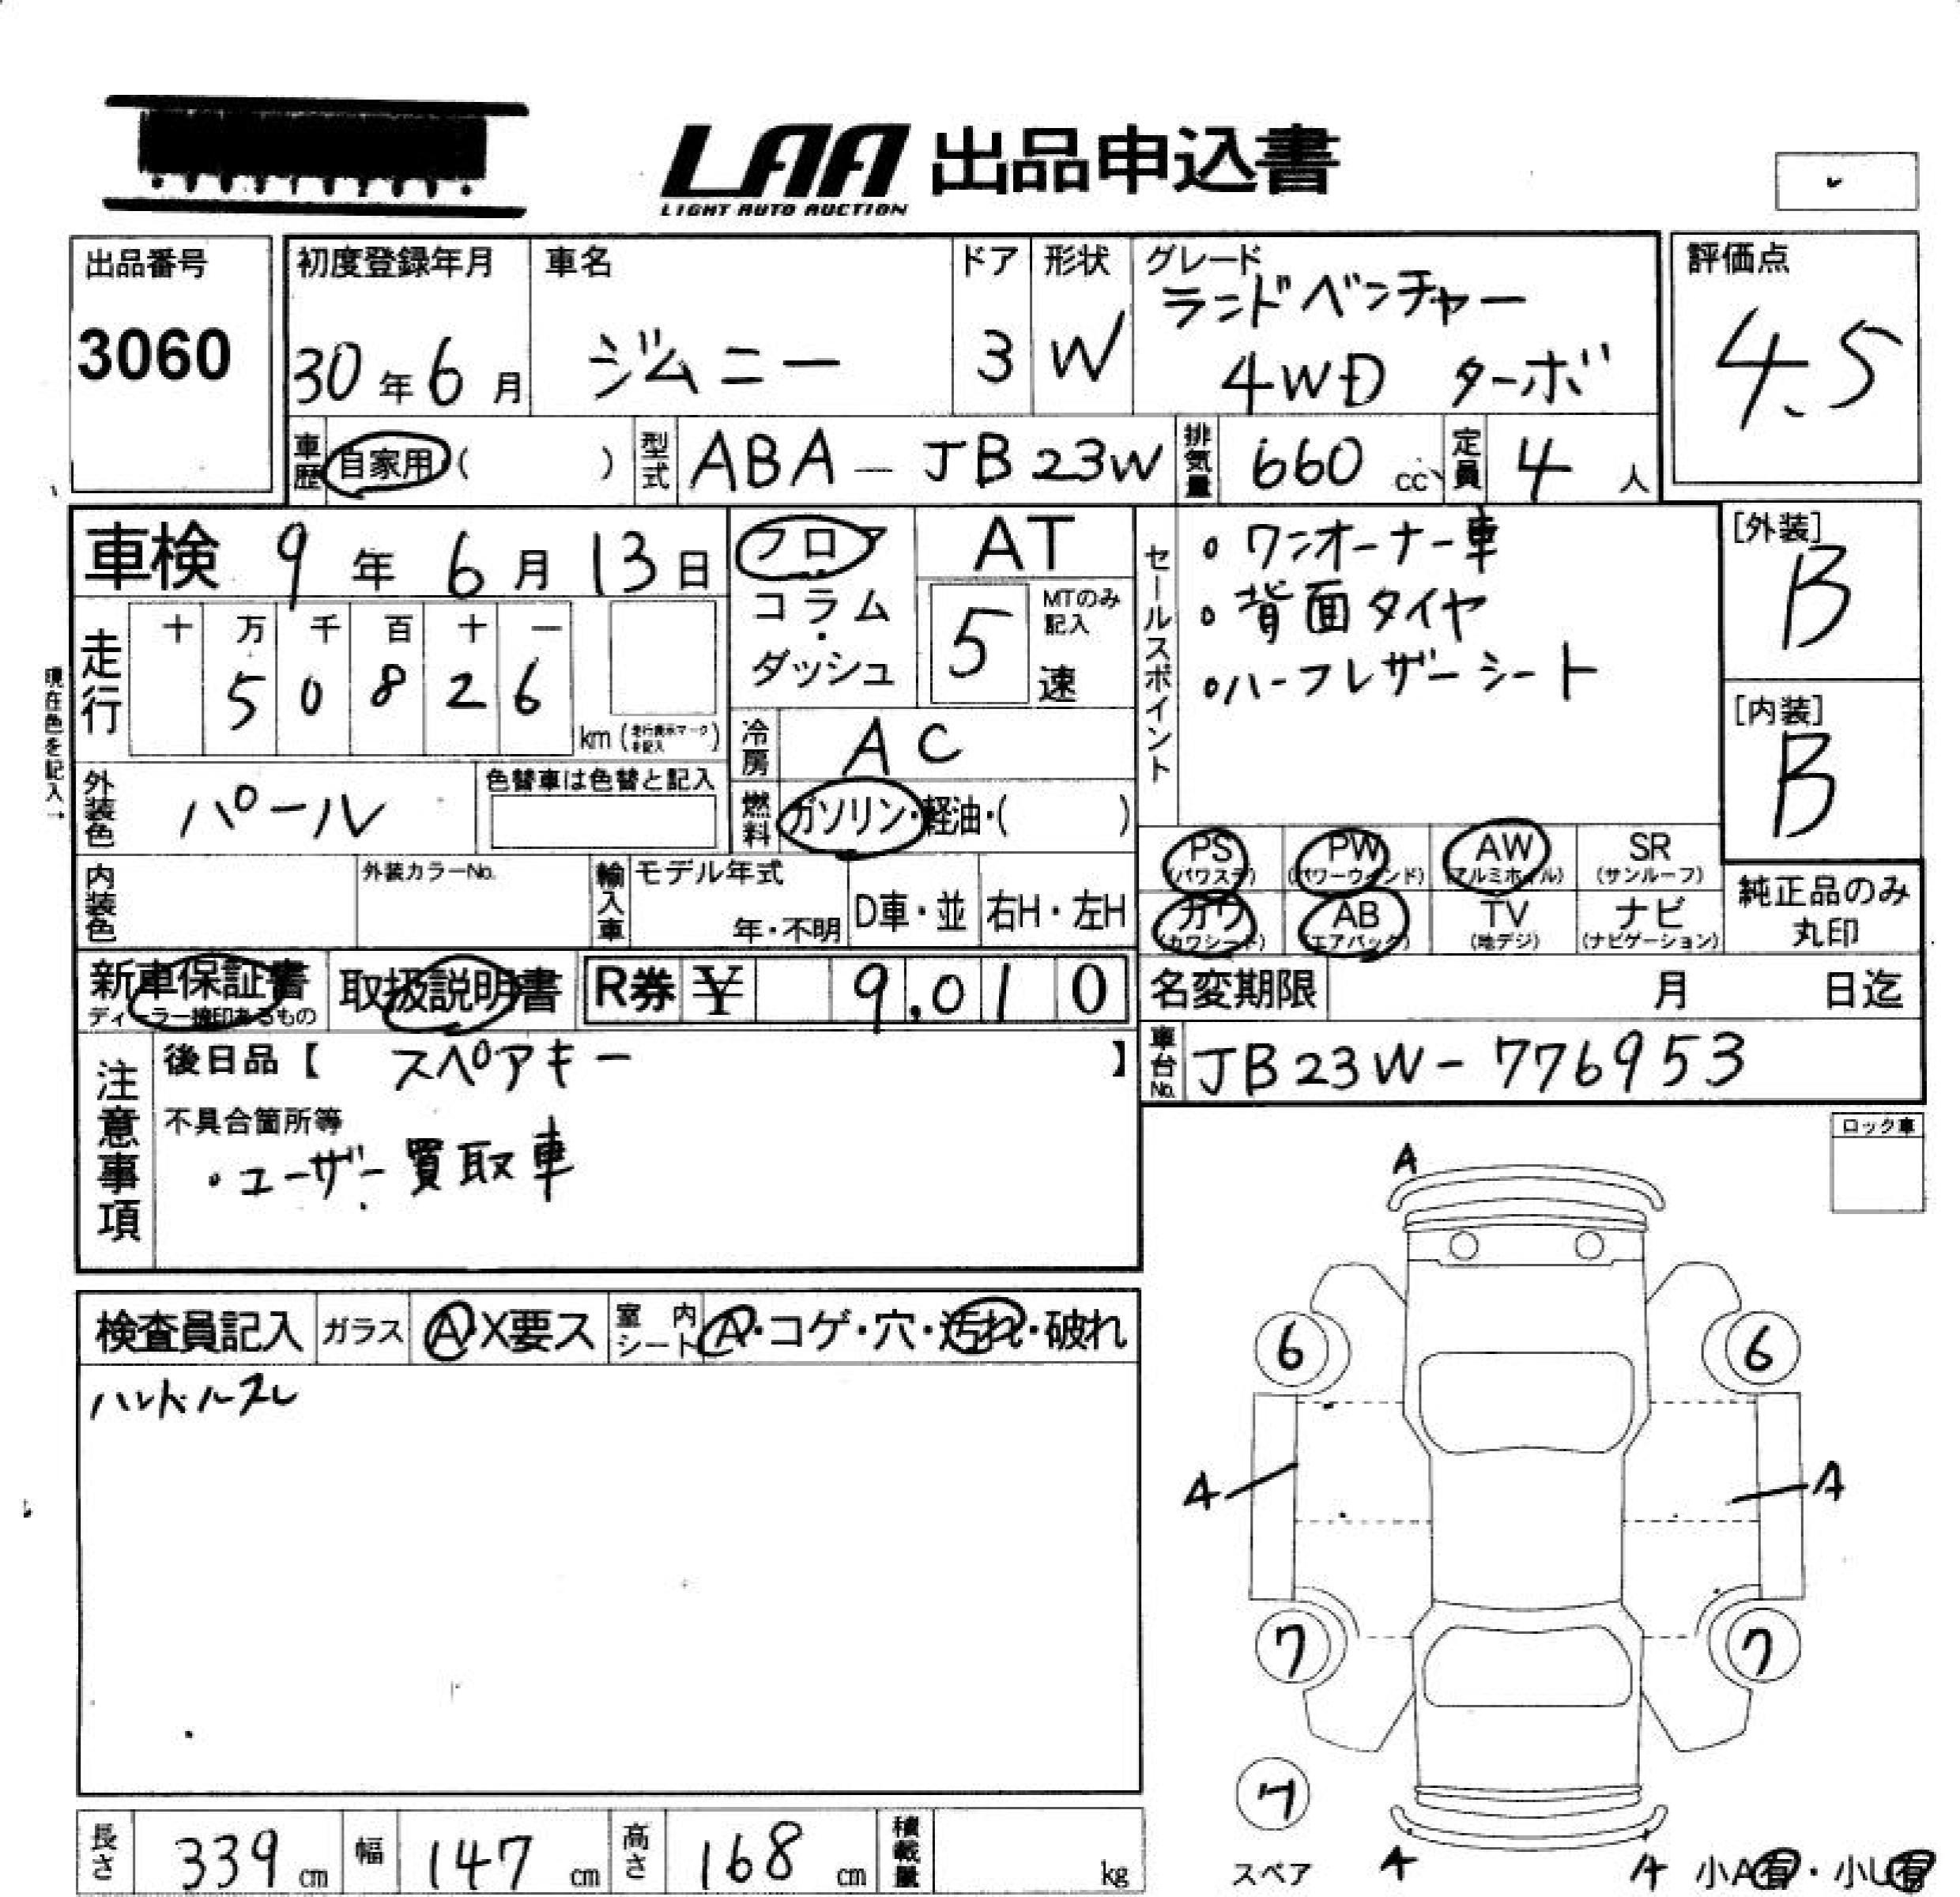 LAA 出品申込書
LIGHT AUTO AUCTION
出品番号
3060
初度登録年月
30年6月
車名
ジムニー
ドア
3
形状
W
グレード
ランドベンチャー
4WD ターボ
評価点
4.5
車歴 自家用( )
型式 ABA-JB23W
排気量 660 cc
定員 4 人
車検 9年6月13日
走行
十 万 千 百 十 一
5 0 8 2 6
km(走行表示マークを記入)
現在色を記入→
外装色 パール
色替車は色替と記入
内装色
外装カラーNo.
フロア
コラム
・
ダッシュ
AT
5
MTのみ記入
速
冷房 AC
燃料 ガソリン・軽油・( )
輸入車
モデル年式
年・不明
D車・並
右H・左H
セールスポイント
・ワンオーナー車
・背面タイヤ
・ハーフレザーシート
[外装]
B
[内装]
B
PS
(パワステ)
PW
(パワーウインド)
AW
(アルミホイル)
SR
(サンルーフ)
カワ
(カワシート)
AB
(エアバック)
TV
(地デジ)
ナビ
(ナビゲーション)
純正品のみ
丸印
新車保証書
ディーラー捺印あるもの
取扱説明書
R券 ¥ 9,010
名変期限 月 日迄
車台No. JB23W-776953
注意事項
後日品【 スペアキー 】
不具合箇所等
・ユーザー買取車
ロック車
検査員記入
ガラス
A・X要ス
室内シート
A・コゲ・穴・汚れ・破れ
ハンドルスレ
A
6
6
A
A
7
7
7
スペア
A
A
小A有・小U有
長さ 339 cm
幅 147 cm
高さ 168 cm
積載量 kg